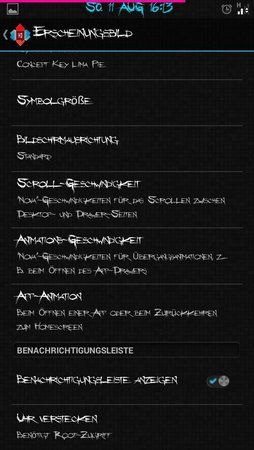 So. 11 Aug 16:13
Erscheinungsbild
Conceit Key Lima Pie
Symbolgröße
Bildschirmausrichtung
Standard
Scroll-Geschwindigkeit
Nova'-Geschwindigkeiten für das Scrollen zwischen
Desktop- und Drawer-Seiten
Animations-Geschwindigkeit
Nova'-Geschwindigkeiten für Übergangsanimationen, z.
B. beim Öffnen des App-Drawers
App-Animation
Beim Öffnen einer App oder beim Zurückkehren
zum Homescreen
BENACHRICHTIGUNGSLEISTE
Benachrichtigungsleiste anzeigen
Uhr verstecken
Benötigt Root-Zugriff